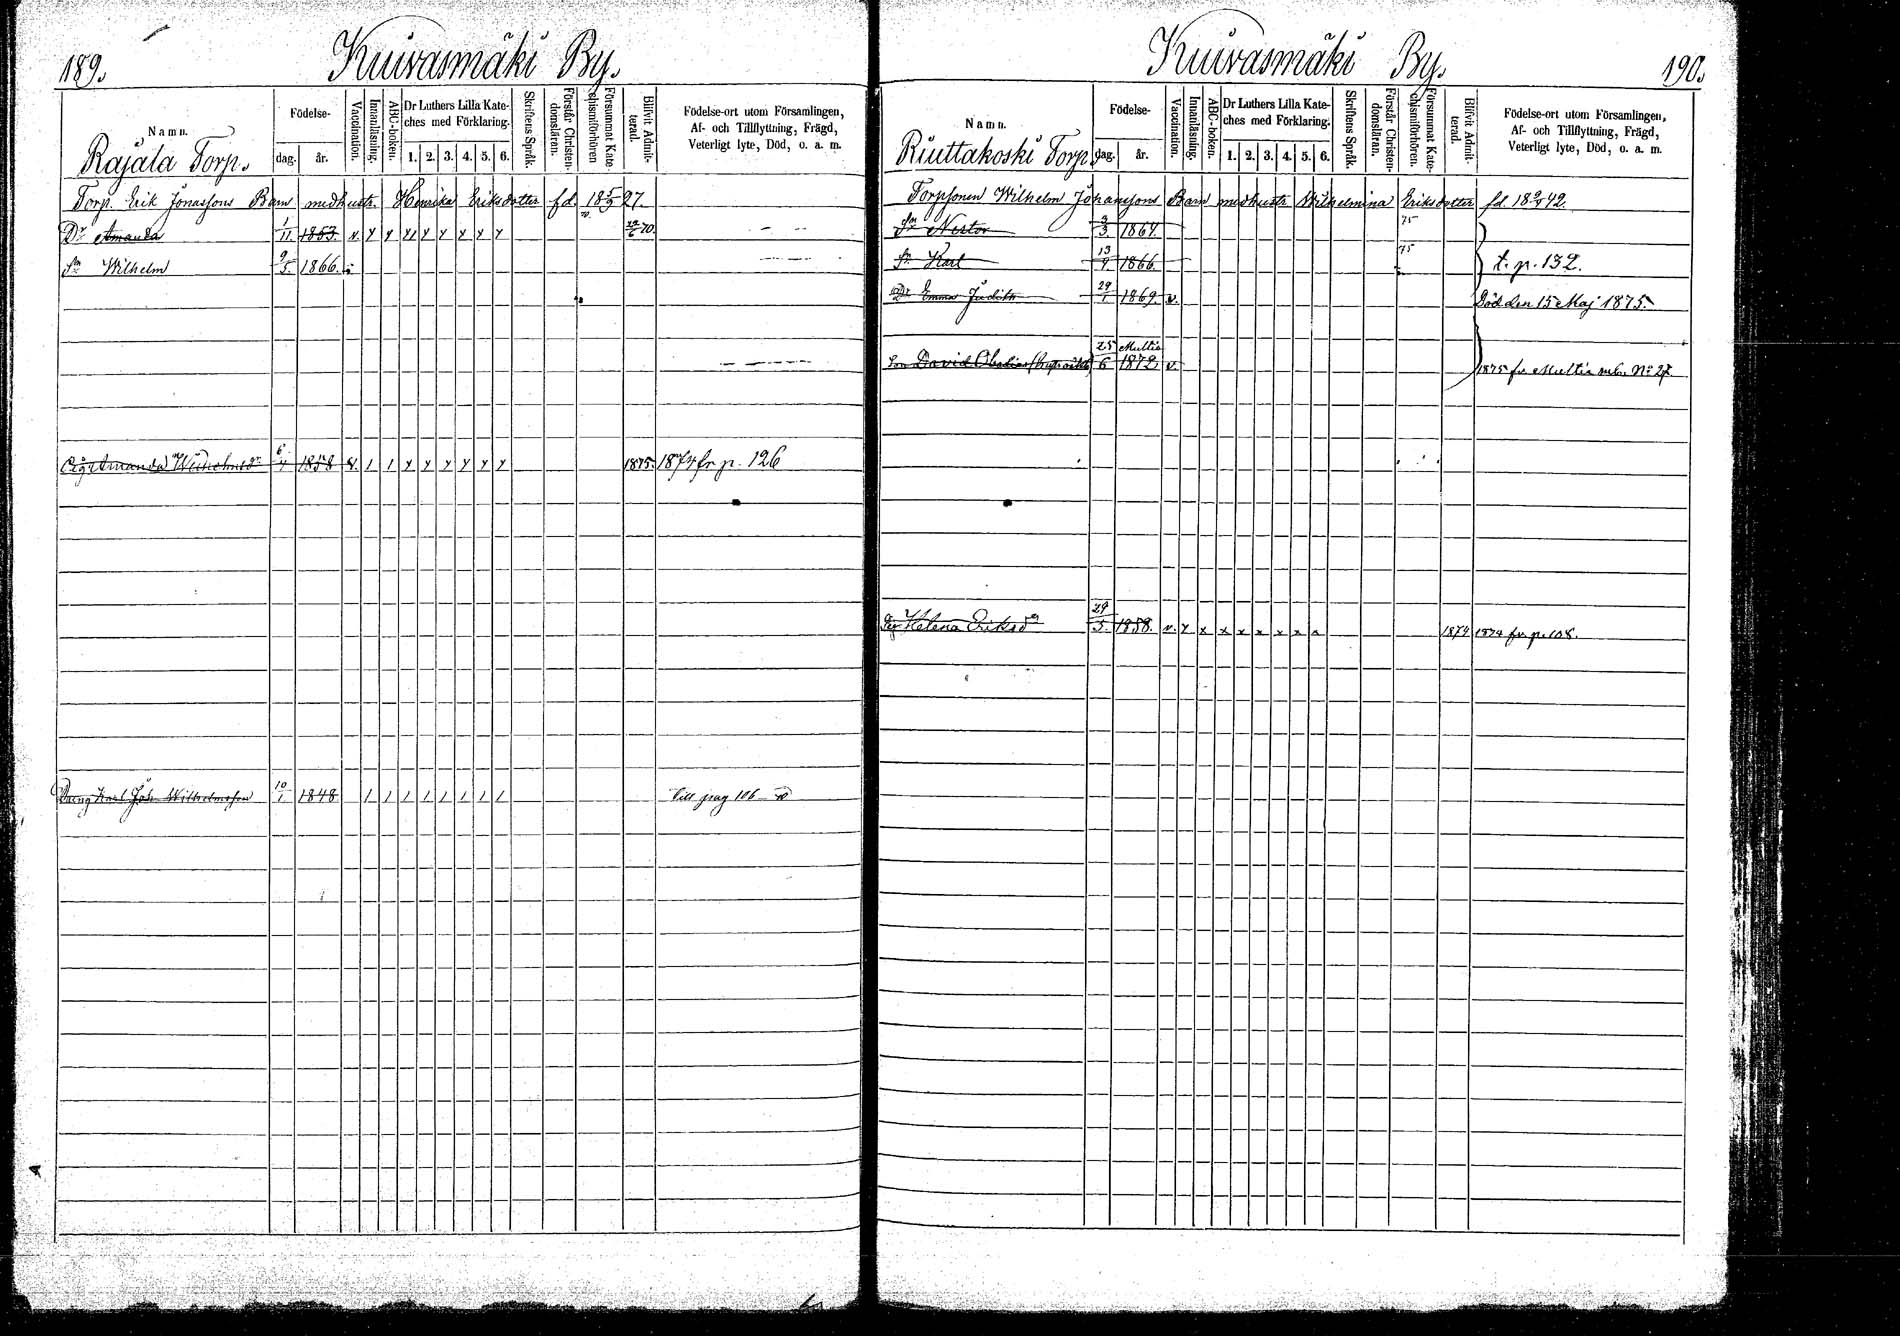 189.
Kuivasmäki By.
Namn.
Rajala Torp.
Födelse-
dag. år.
Vaccination.
Innanläsning.
ABC-boken.
Dr Luthers Lilla Kate-
ches med Förklaring.
1. 2. 3. 4. 5. 6.
Skriftens Språk.
Förstår Christen-
domsläran.
Försummat Kate-
chismiförhören
Blifvit Admit-
terad.
Födelse-ort utom Församlingen,
Af- och Tillflyttning, Frägd,
Veterligt lyte, Död, o. a. m.
Torp. Erik Jonassons Barn med hustr. Henrika Eriksdotter fd. 18 5/9 27.
Dr Amanda 1/11 1853. v. 70.
Sn Wilhelm 9/5. 1866. v.
Pig. Amanda Wilhelmsdr 6/4 1858 v. 1 1 1875. 1874 fr p. 126
Dreng Karl Joh. Wilhelmsson 10/1 1848 1 1 1 1 1 1 1 1 Till pag 106
Kuivasmäki By.
190.
Namn.
Riuttakoski Torp.
Födelse-
dag. år.
Vaccination.
Innanläsning.
ABC-boken.
Dr Luthers Lilla Kate-
ches med Förklaring.
1. 2. 3. 4. 5. 6.
Skriftens Språk.
Förstår Christen-
domsläran.
Försummat Kate-
chismiförhören.
Blifvit Admit-
terad.
Födelse-ort utom Församlingen,
Af- och Tillflyttning, Frägd,
Veterligt lyte, Död, o. a. m.
Torpsonen Wilhelm Johanssons Barn med hustr Wilhelmina Eriksdotter fd. 42.
Sn Nestor 3/3. 1864. 75
Sn Karl 13/9. 1866. 75 t. p. 132.
Dr Emma Judith 29/1 1869. v. Död den 15 Maj 1875.
Son David 25/6 Multia 1872 v. 1875 fr Multia No 27.
Pig Helena Eriksdr 29/5. 1858. v. 1874 1874 fr p. 108.